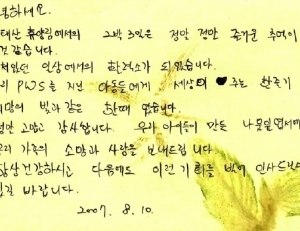 하세요.
휴양림에서의 2박 3일은 정말 정말 즐거운 추억이
것 같습니다.
인상에서의 한 가 되었습니다.
리 PWS를 지닌 아동들에게 세상의 주는 한줄기
희망의 빛과 같은 한때 였습니다.
정말 고맙고 감사합니다. 우리 아이들이 만든 나뭇잎엽서에
우리 가족의 소망과 사랑을 보내드립니다
항상 건강하시고 다음에도 이런 기회를 빌어 인사드
길 바랍니다.
2007. 8. 10.